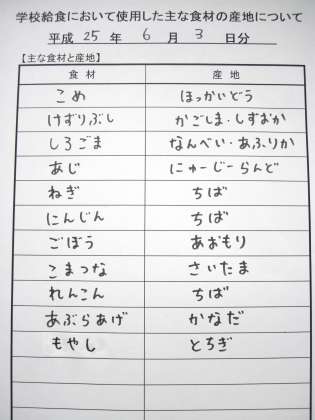 学校給食において使用した主な食材の産地について
平成 25 年 6 月 3 日分
【主な食材と産地】
食材 産地
こめ ほっかいどう
けずりぶし かごしま・しずおか
しろごま なんべい・あふりか
あじ にゅーじーらんど
ねぎ ちば
にんじん ちば
ごぼう あおもり
こまつな さいたま
れんこん ちば
あぶらあげ かなだ
もやし とちぎ